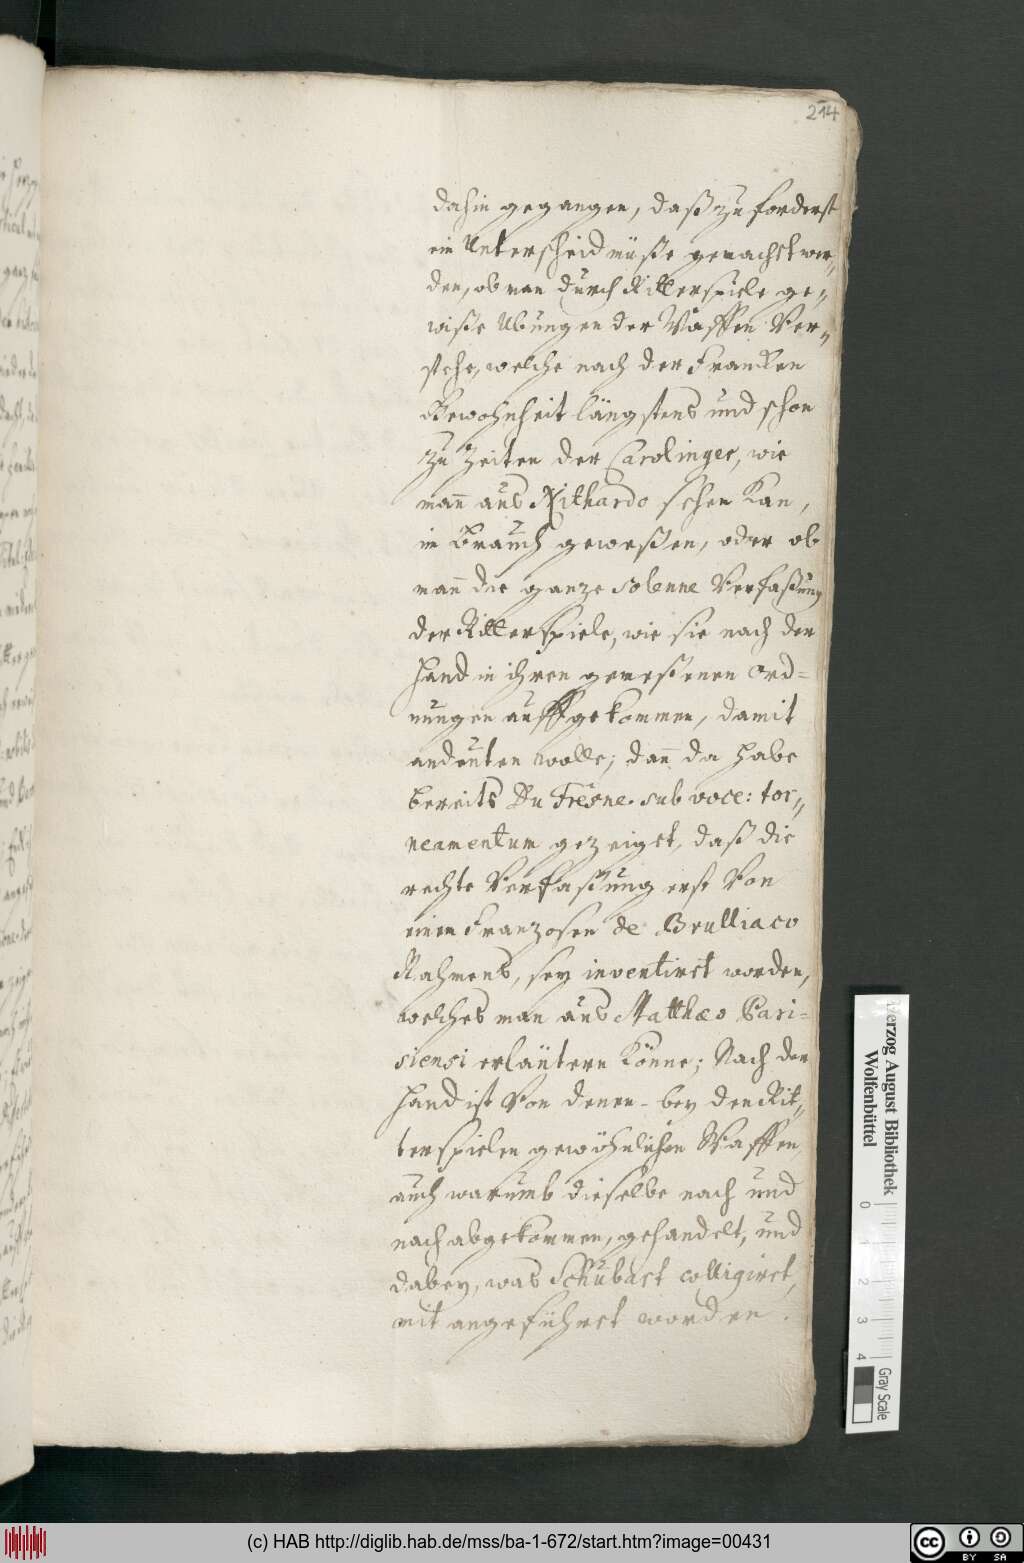 214
dahin gegangen, daß zu forderst
ein Unterscheid müße gemacht wer„
den, ob man durch Ritterspiele ge„
wiße Ubungen der Waffen Ver„
stehe, welche nach der Francken
Gewohnheit längstens und schon
zu Zeiten der Carolinger, wie
man̄ aus Nithardo sehen kan,
im Brauch geweßen, oder ob
man̄ die ganze solenne Verfaßung
der Ritterspiele, wie sie nach der
Hand in ihren gemeßenen Ord=
nungen auffgekommen, damit
andeuten wolle; dan̄ da habe
bereits Du Fresne. sub voce: tor„
neamentum gezeiget, daß die
rechte Verfaßung erst Von
einem Franzosen de Brulliaco
Nahmens, sey inventiret worden,
welches man aus Matthæo Pari=
siensi erläutern könne; Nach der
Hand ist Von denen - bey den Rit„
terspielen gewöhnlichen Waffen,
auch warumb dieselbe nach und
nach abgekommen, gehandelt, und
dabey, was Schubart colligiret,
mit angeführet worden.
Herzog August Bibliothek
Wolfenbüttel
0 1 2 3 4
Gray Scale
(c) HAB http://diglib.hab.de/mss/ba-1-672/start.htm?image=00431
cc BY SA